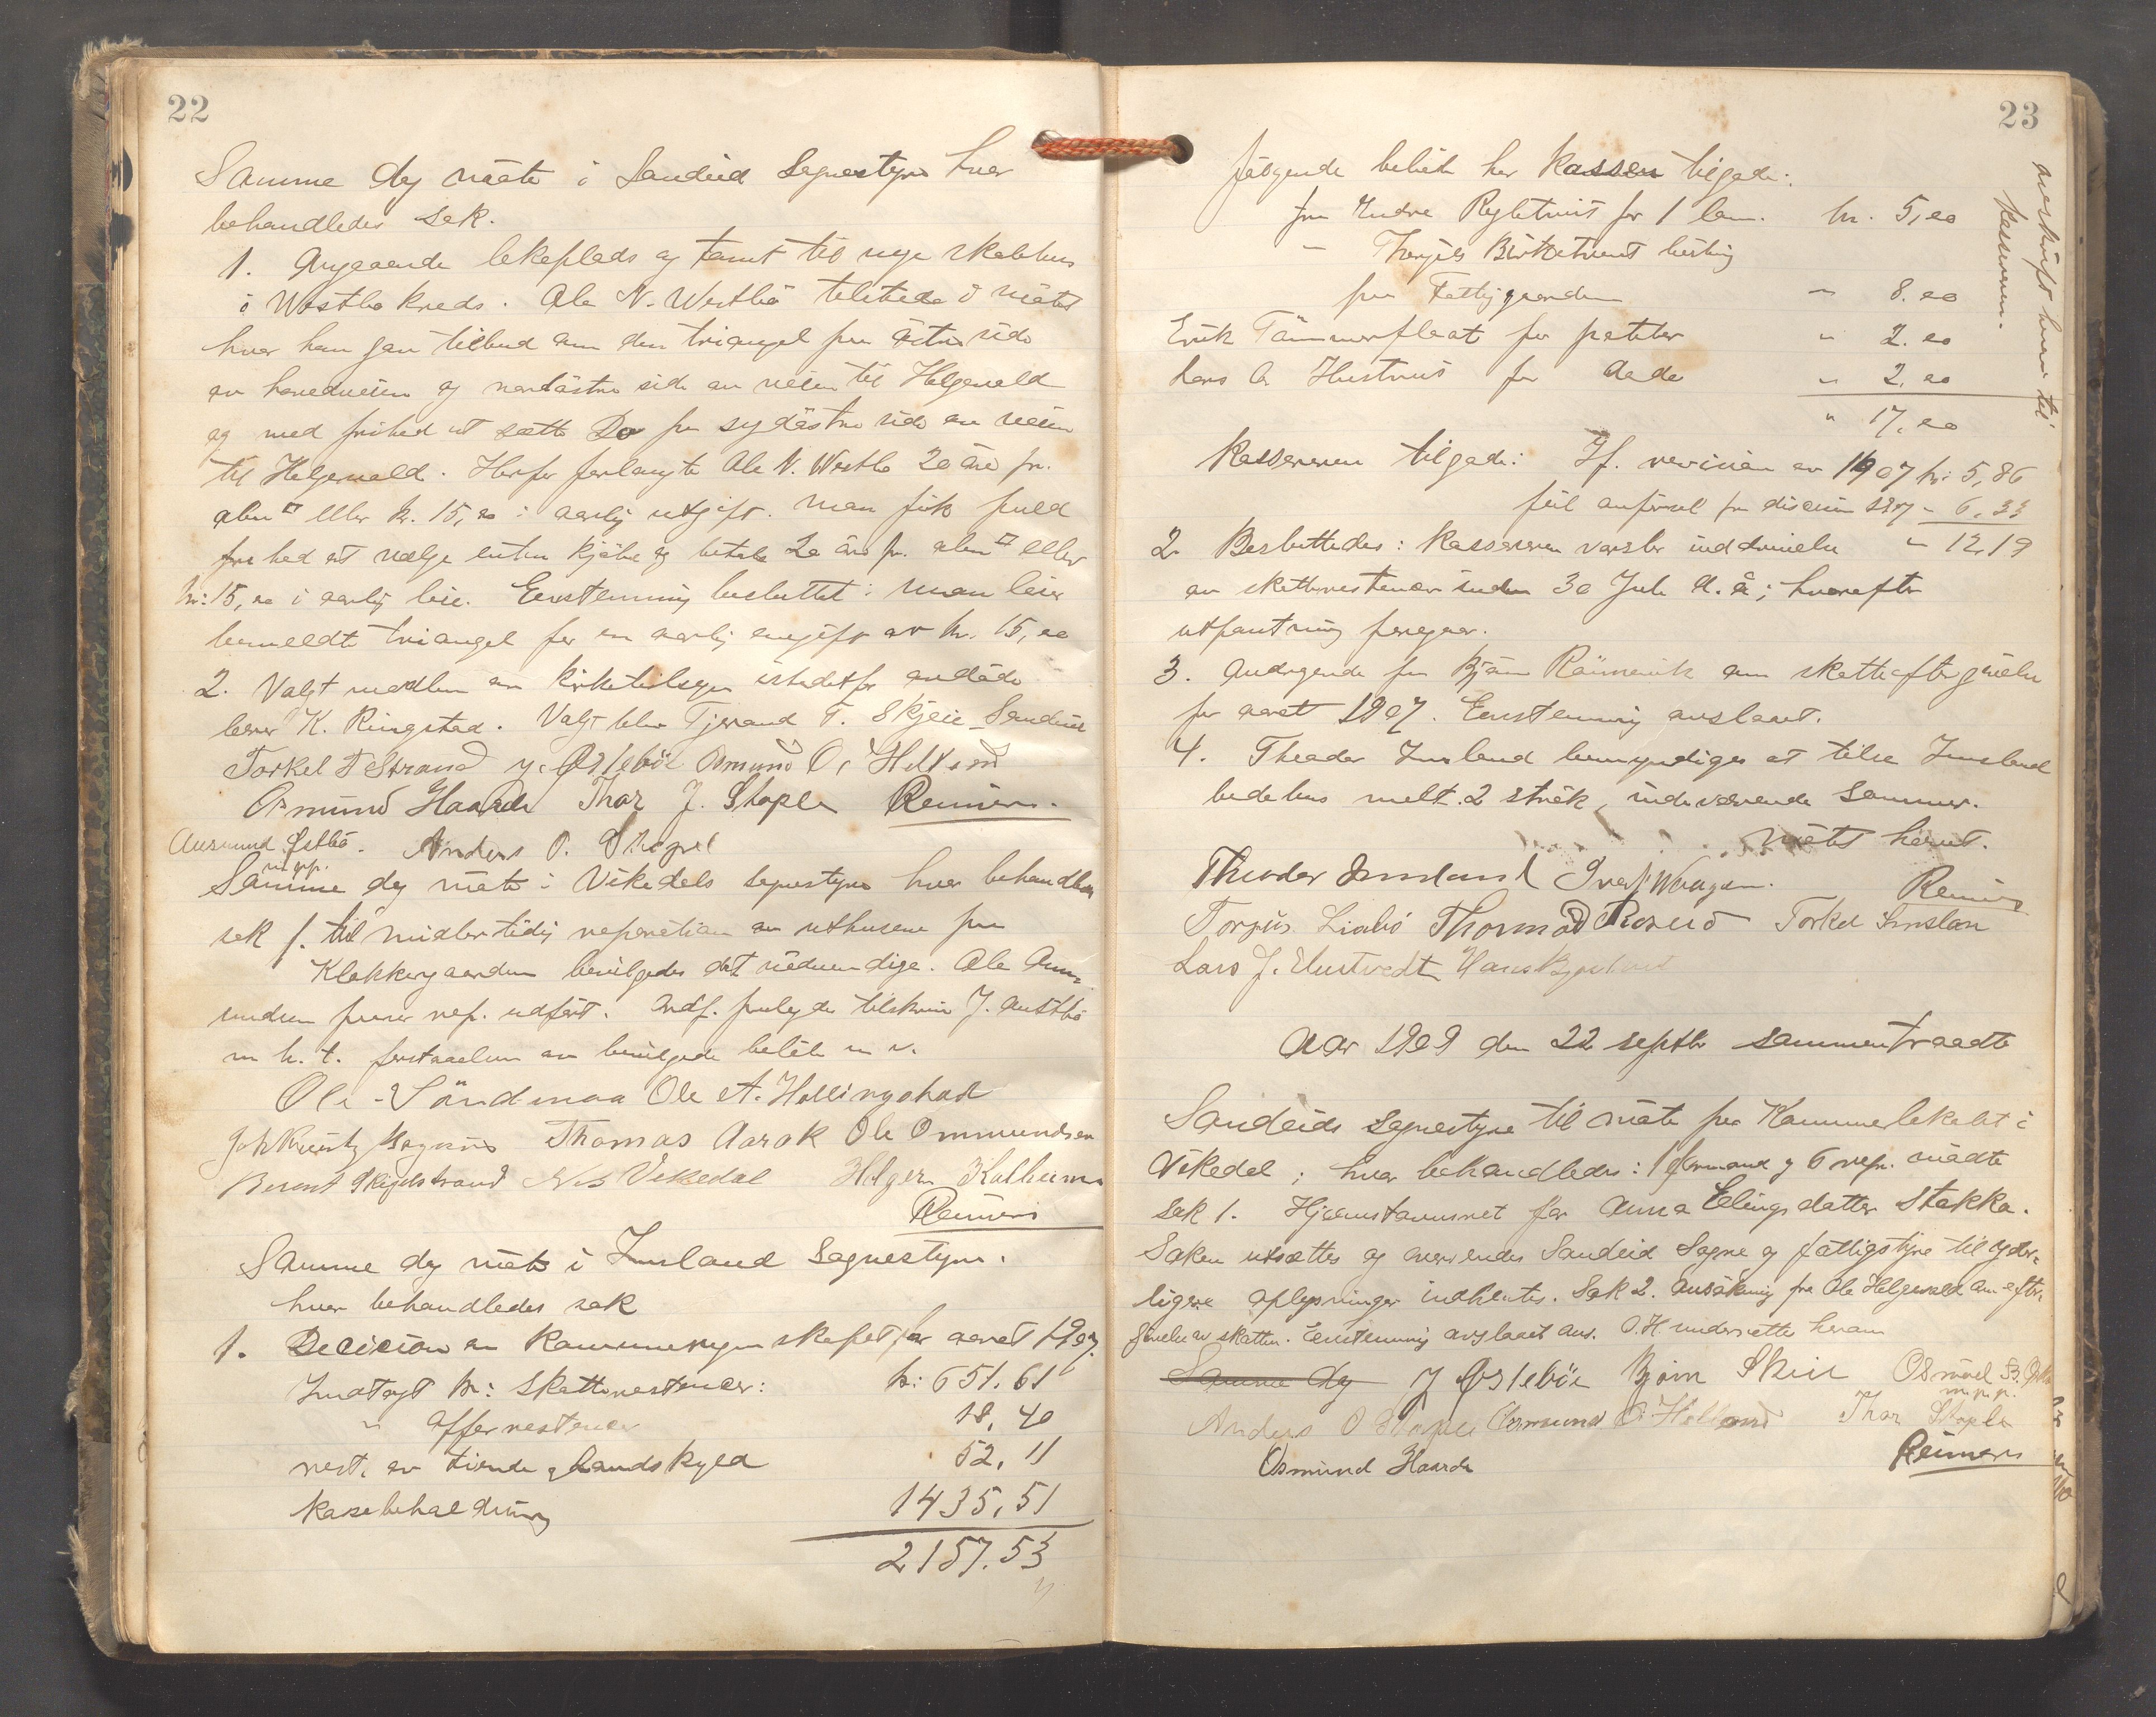 22
Samme dag møte i Sandeid Sognestyre hvor
behandledes sak.
1. Angaaende lekeplads og tomt til nye skolehus
i Westbø kreds. Ole N. Westbø tilstede i møtet
hvor han gav tilbud om den triangel paa østre side
av hovedveien og nordøstre side av veien til Helgevold
og med frihed at sætte Do paa sydøstre side av veien
til Helgevold. Herfor forlangte Ole N. Westbø 20 øre pr.
alen □ eller kr. 15,00 i aarlig utgift. Man fik fuld
frihed at vælge enten kjøbe og betale 20 øre pr. alen □ eller
kr: 15,00 i aarlig leie. Eenstemmig besluttet: man leier
bemeldte triangel for en aarlig avgift av kr. 15,00
2. Valgt medlem av kirketilsyn istedetfor avdøde
lærer K. Ringstad. Valgt blev Tjerand T. Skjeie Sandeid
Torkel T Strand J. Østebøe Osmund O. Helland
Osmund Haarde Thor J. Stople Reimers.
Ausmund Østbø. Anders O. Stople
m.p.p.
Samme dag møte i Vikedals sognestyre hvor behandledes
sak 1. til midlertidig reparation av uthusene paa
Klokkergaarden bevilgedes det nødvendige. Ole Om-
mundsen faar rep. udført. Ordf. paalægdes tilskrive J. Austbø
m h. t. forstaaelsen av bevilgede beløb m v.
Ole Søndenaa Ole A. Hallingstad
Thomas Aarak Ole Ommundsen
Berent Skeyelstrand Nils Vikedal Helger Kalheim
Reimers
Samme dag møte i Imsland Sognestyre.
hvor behandledes sak
1. Decicion av Kommuneregnskapet for aaret 1907.
Indtægt kr: Skatterestencer: kr: 651.61
" Offerrestencer 18,40
rest. av tiende & Landskyld 52,11
Kassebeholdning 1435,51
2157.53
23
følgende beløb har Kassen tilgode:
fra Endre for 1 lam. kr. 5,00
" Thorgils Birketveit
fra Fattiggaarden " 8.00
Erik Tømmerflaat for poteter " 2.00
Lars A. Hustveit for Do do " 2.00
" 17,00
overskrift herav til
Kassereren.
Kassereren tilgode: If. revision av 1907 kr: 5,86
feil anførsel fra dision 1907 " 6,33
2. Besluttedes: Kassereren varsler inddrivelse " 12,19
av skatterestencer inden 30 Juli d. å; hvorefter
utpantning foregaar.
3. Andragende fra Bjørn Rømerik om skatteeftergivelse
for aaret 1907. Eenstemmig avslaaet.
4. Theodor Imsland bemyndiges at tilse Imsland
bedehus malt 2 strøk, indeværende Sommer.
møtet hævet.
Theodor Imsland Reimers
Torgils Liabø Thormod Roseid Torkel Imsland
Lars J. Hustvedt Hans
Aar 1909 den 22 septbr sammentraadte
Sandeids Sognestyre til møte paa Kommunelokalet i
Vikedal; hvor behandledes: 1 formand og 6 repr. mødte
Sak 1. Hjemstavnsret for Anna Elingsdatter Stakka.
Saken utsættes og oversendes Sandeid Sogne og fattigstyre til yder-
ligere oplysninger indhentes. Sak 2. Ansøkning fra Ole Helgevold om efter-
givelse av skatten. Eenstemmig avslaaet ans. O.H. underrettes herom
Samme dag J Østebøe Bjørn Skeie Osmund
m.p.p.
Anders O Stople Osmund O. Helland Thor Stople
Osmund Haarde Reimers